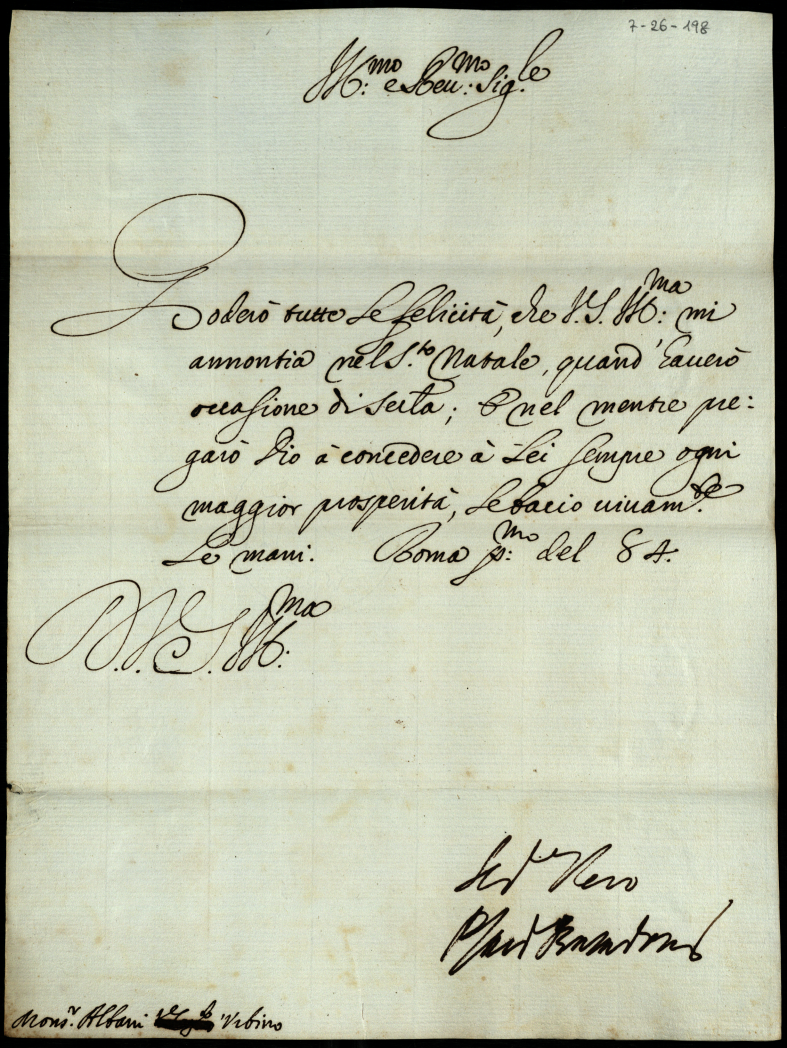 7-26-198
Ill:mo e Reu:mo Sig.le
Goderò tutte le felicità, che V.S. Ill:ma mi
annontia nel S.to Natale, quand' hauerò
occasione di seruirla; E nel mentre pre:
garò Dio à concedere à Lei sempre ogni
maggior prosperità, le bacio uiuam.te
le mani. Roma p:mo del 84.
D.V.S. Ill.ma
Ser.e Vero
Mons.r Albani Vrbino